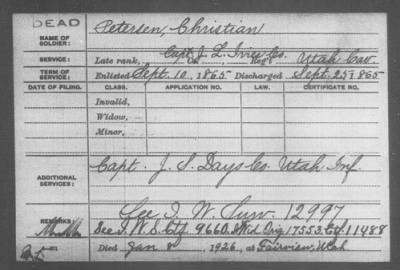 DEAD
NAME OF SOLDIER: Petersen, Christian
SERVICE: Late rank, Capt. J. L. Ivie's Co. Co., Reg't Utah Cav
TERM OF SERVICE: Enlisted Sept. 10, 1865 Discharged Sept. 25 1865
DATE OF FILING. CLASS. APPLICATION NO. LAW. CERTIFICATE NO.
Invalid,
Widow,
Minor,
ADDITIONAL SERVICES: Capt. J. S. Days Co. Utah Inf.
See I. W. Surv. 12997
REMARKS: See I. W. S. Ctf. 9660. Wid Orig 17553 Ctf. 11488
Died Jan 8, 1926, at Fairview, Utah